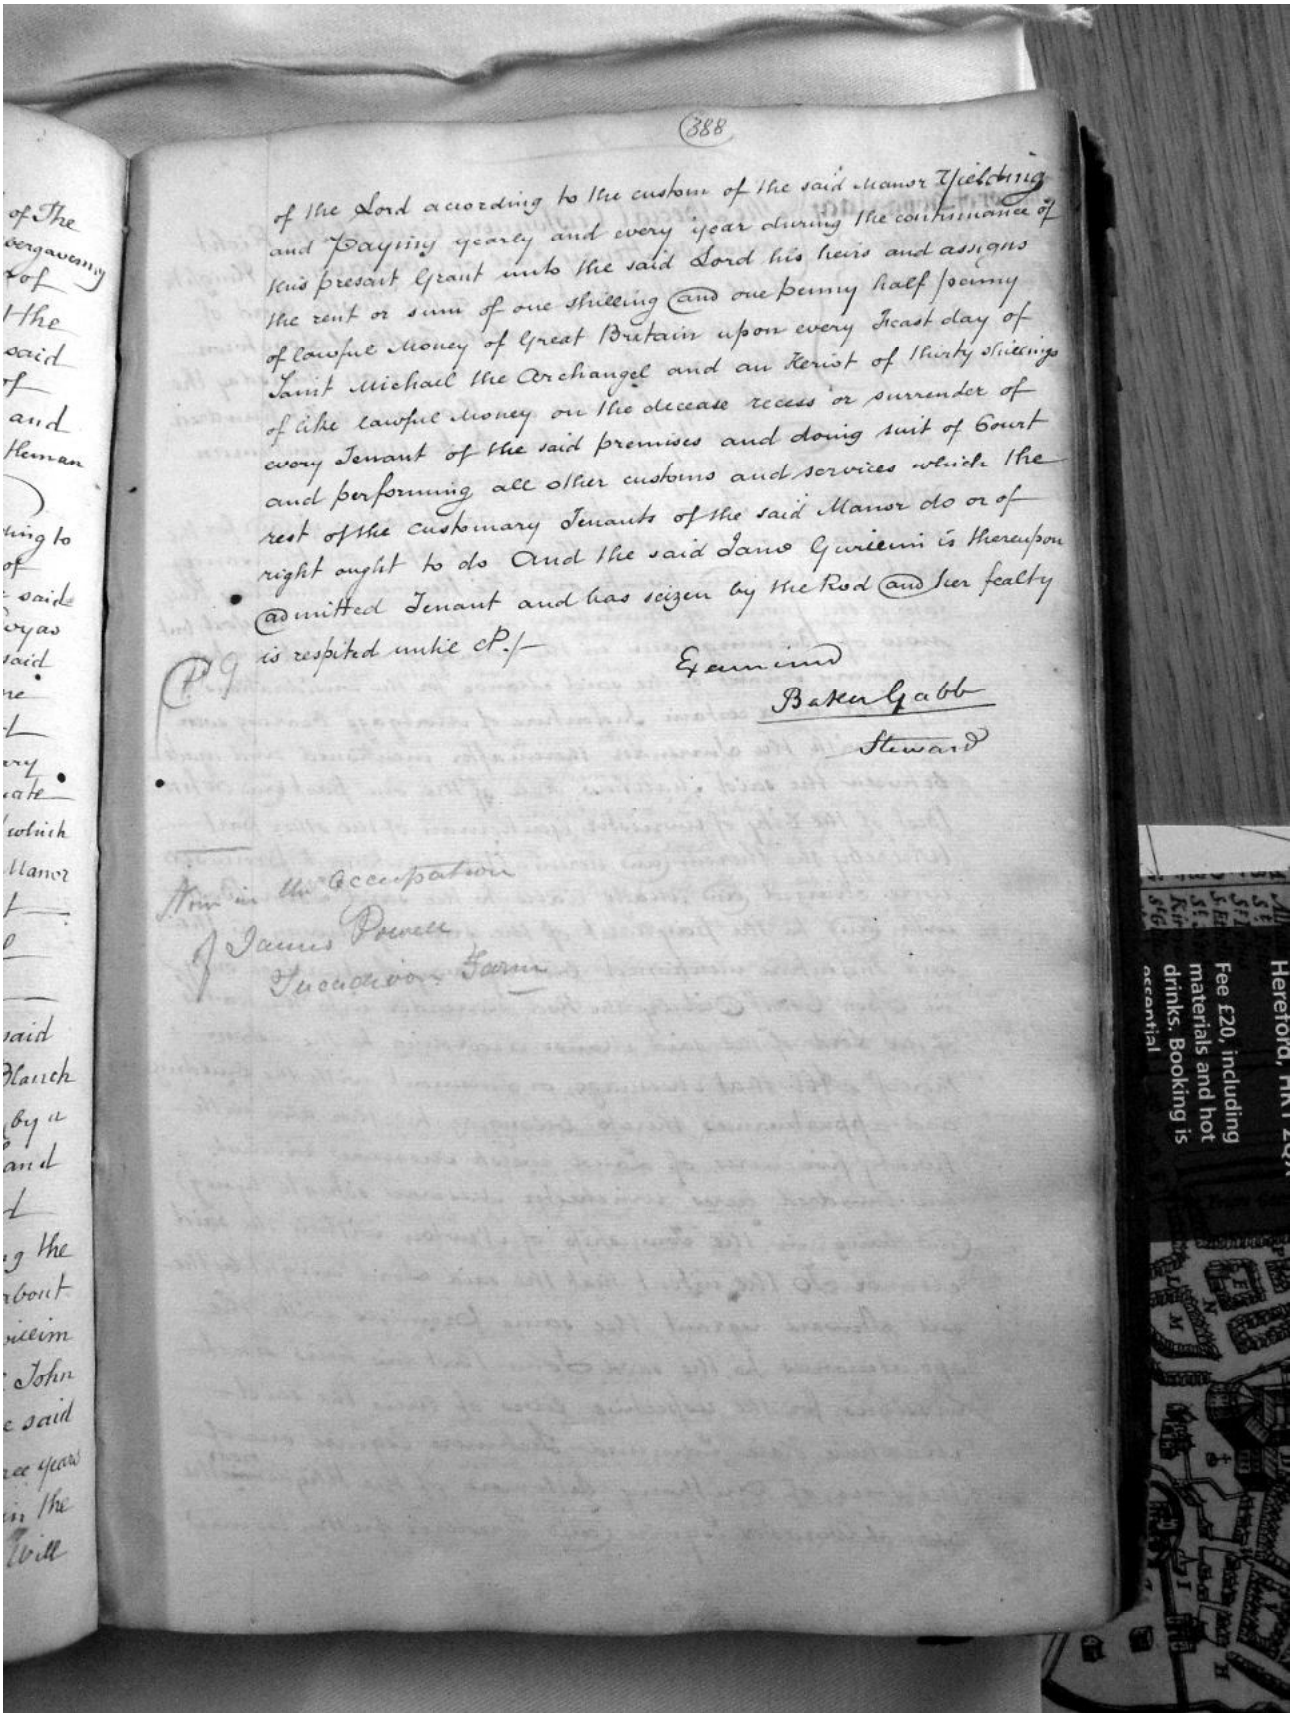 of The
vergavenny
of
the
said
of
and
Heman
ing to
of
said
said
which
Manor
said
Blanch
by a
and
g the
about
villim
John
e said
ree years
in the
Will
388
of the Lord according to the custom of the said Manor Yielding
and Paying yearly and every year during the continuance of
this present Grant unto the said Lord his heirs and assigns
the rent or sum of one shilling and one penny half penny
of lawful Money of Great Britain upon every Feast day of
Saint Michael the Archangel and an Heriot of thirty shillings
of like lawful Money on the decease recess or surrender of
every Tenant of the said premises and doing suit of Court
and performing all other customs and services which the
rest of the customary Tenants of the said Manor do or of
right ought to do And the said Jane Gwillim is thereupon
admitted Tenant and has seizen by the Rod and her fealty
is respited until &c./-
Examined
Baker Gabb
Steward
P 9
Now in the Occupation
of James Powell
Farm
Hereford, HR1 2QX
Fee £20, including
materials and hot
drinks. Booking is
essential